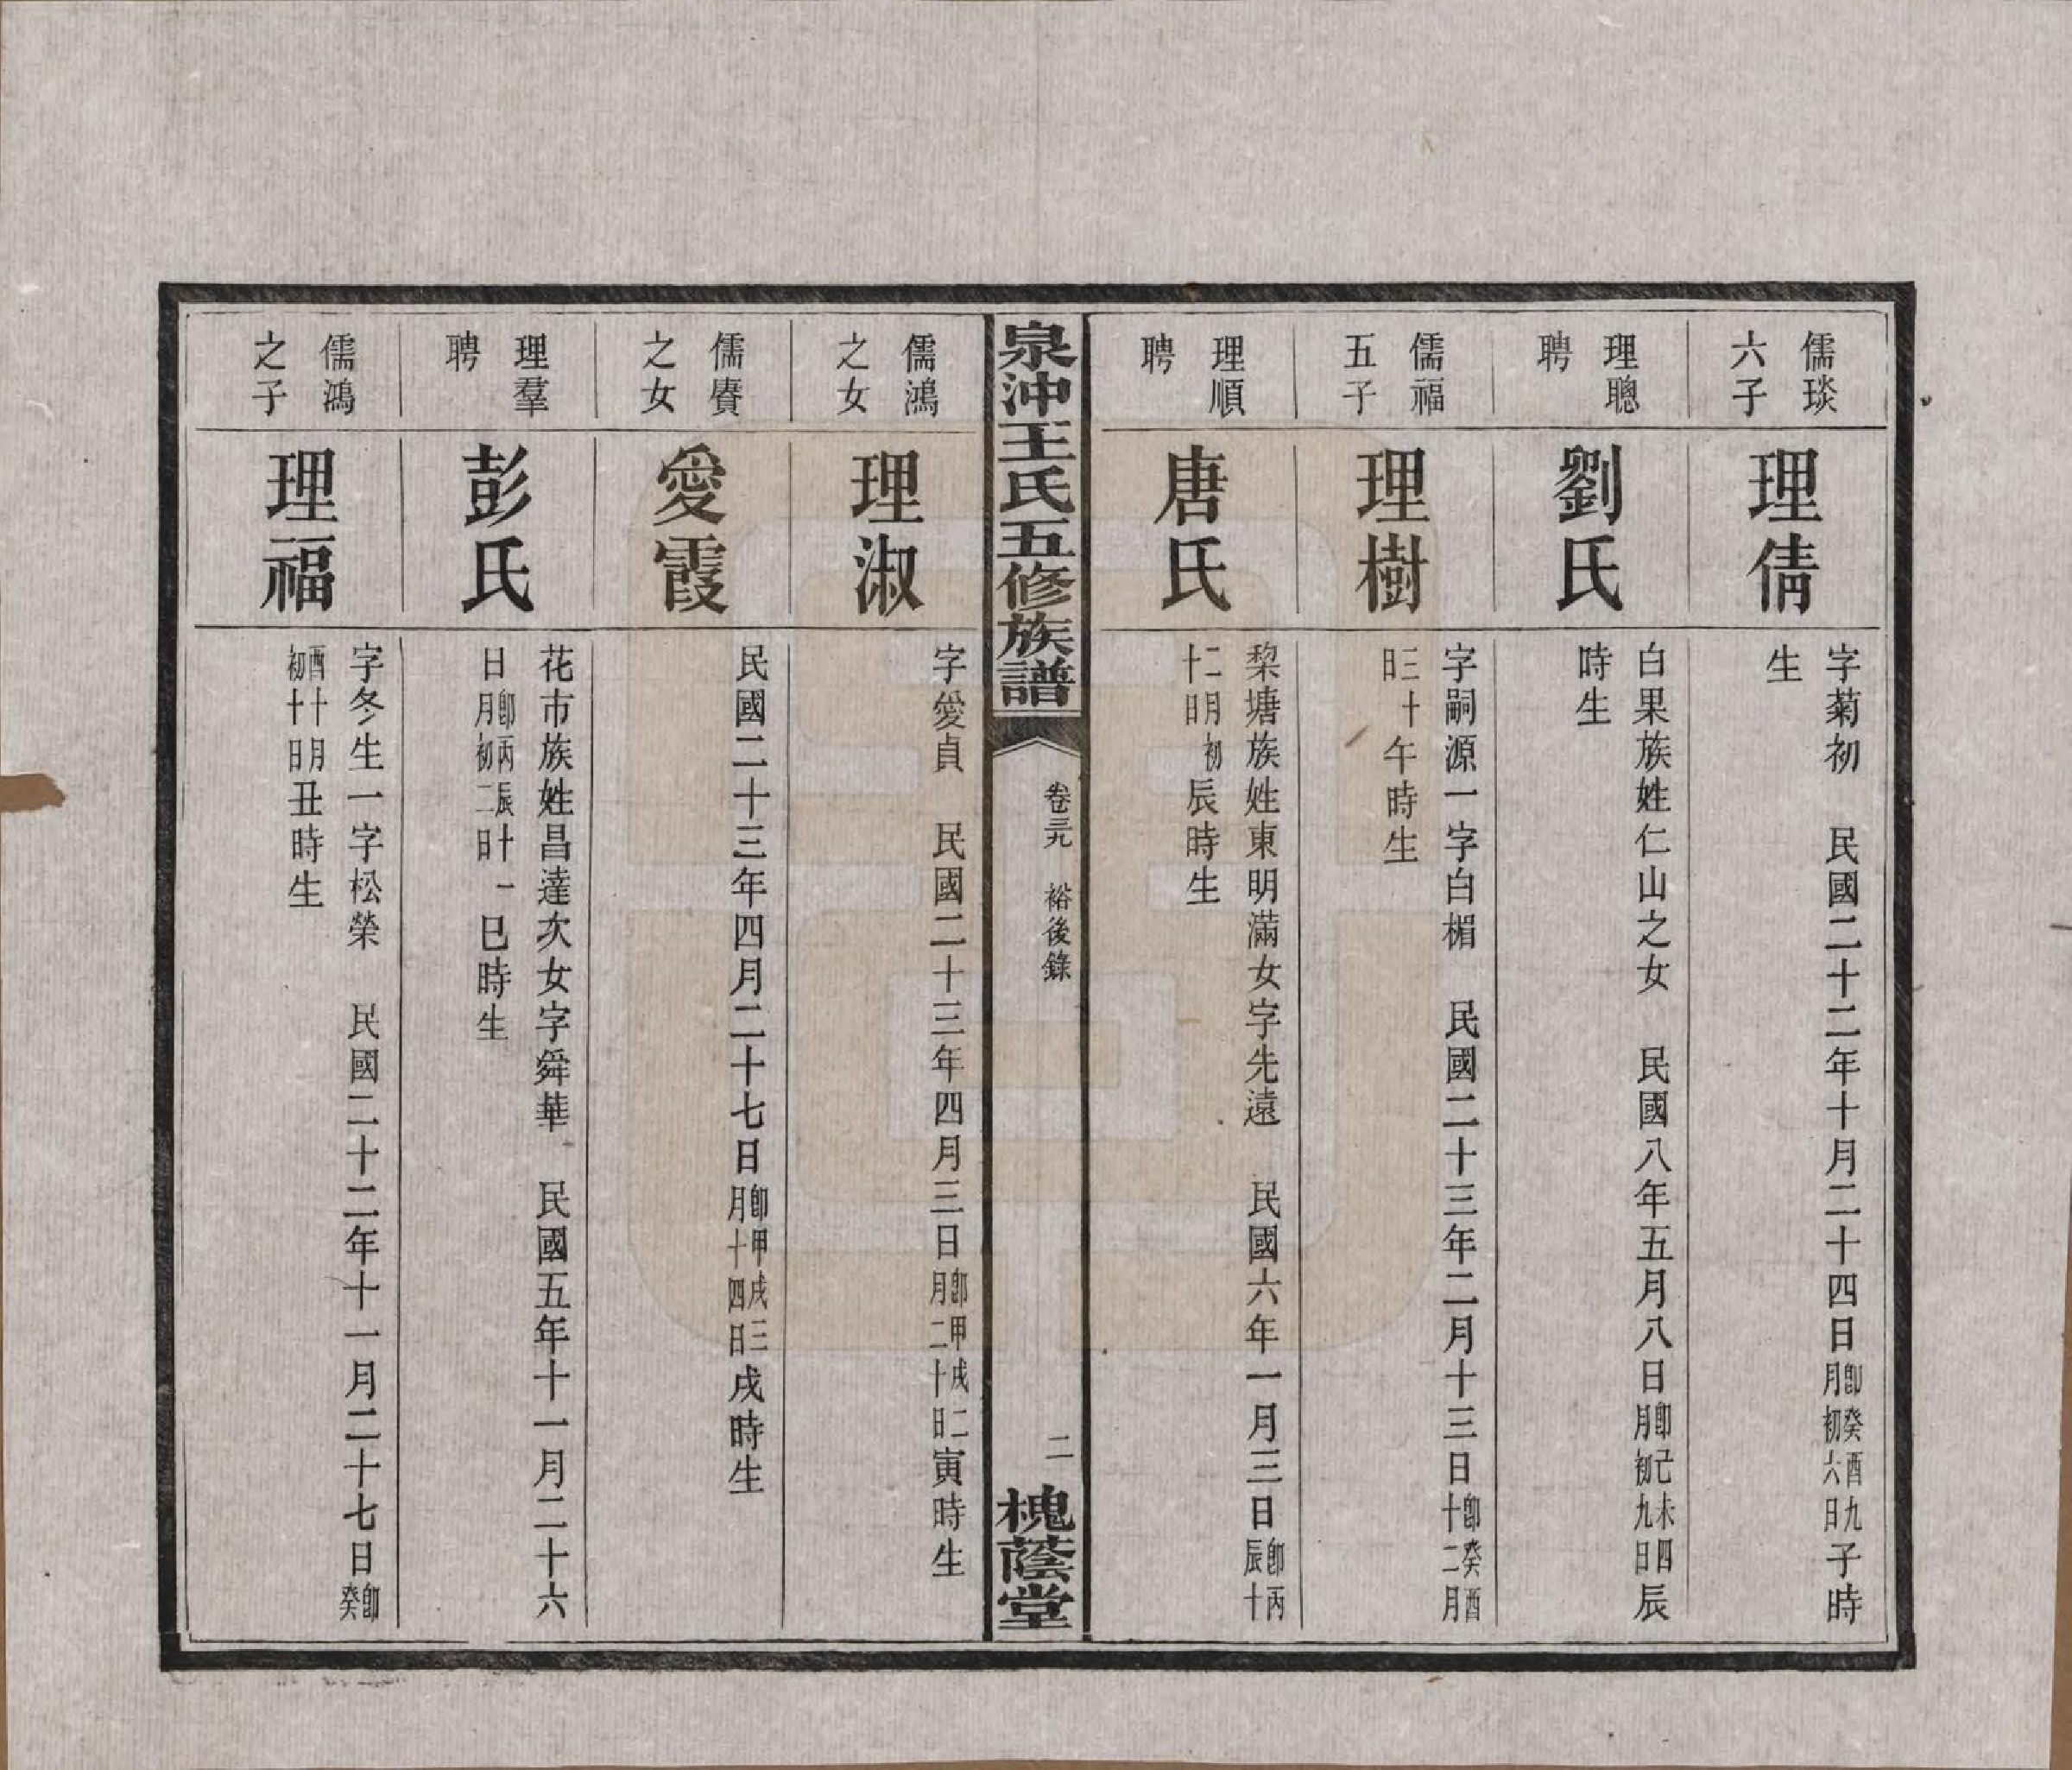 儒琰
六子
理倩
字菊初　民國二十二年十月二十四日卽癸酉九月初六日子時
生
理聰
聘
劉氏
白果族姓仁山之女　民國八年五月八日卽己未四月初九日辰
時生
儒福
五子
理樹
字嗣源一字白楣　民國二十三年二月十三日卽癸酉十二月
三十日午時生
理順
聘
唐氏
棃塘族姓東明滿女字先遠　民國六年一月三日卽丙辰十
二月初十日辰時生
泉沖王氏五修族譜
卷三九　裕後錄
二
槐蔭堂
儒鴻
之女
理淑
字愛貞　民國二十三年四月三日卽甲戌二月二十日寅時生
儒賡
之女
愛霞
民國二十三年四月二十七日卽甲戌三月十四日戌時生
理羣
聘
彭氏
花市族姓昌達次女字舜華　民國五年十一月二十六
日卽丙辰十一月初二日巳時生
儒鴻
之子
理福
字冬生一字松榮　民國二十二年十一月二十七日卽癸
酉十月初十日丑時生